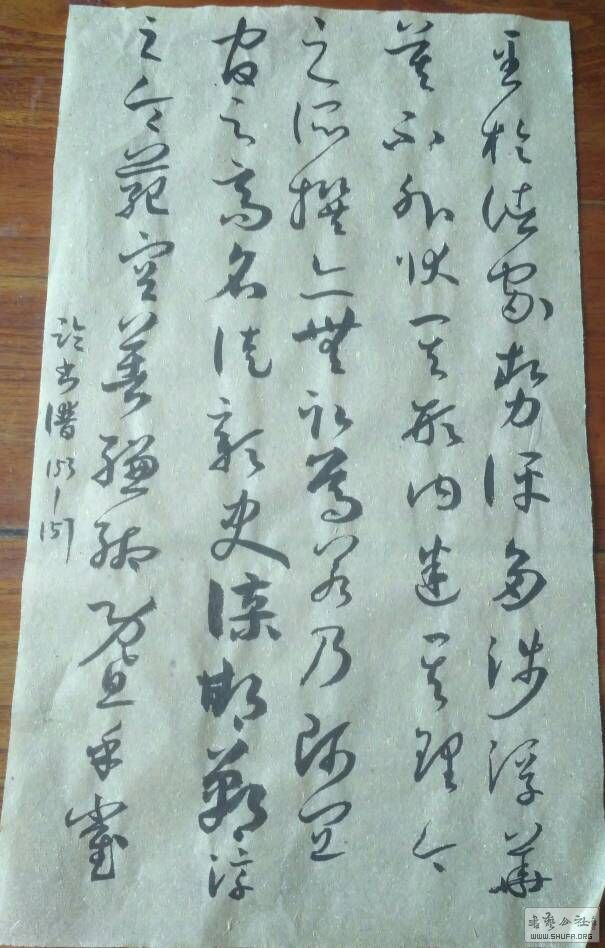 至於諸家勢評多涉浮華
莫不外狀其形內迷其理今
之所撰亦無取焉若乃師宜
官之高名徒彰史牒邯鄲淳
之令範空著縑緗暨乎崔
书譜 153-157
书艺公社
WWW.SHUFA.ORG